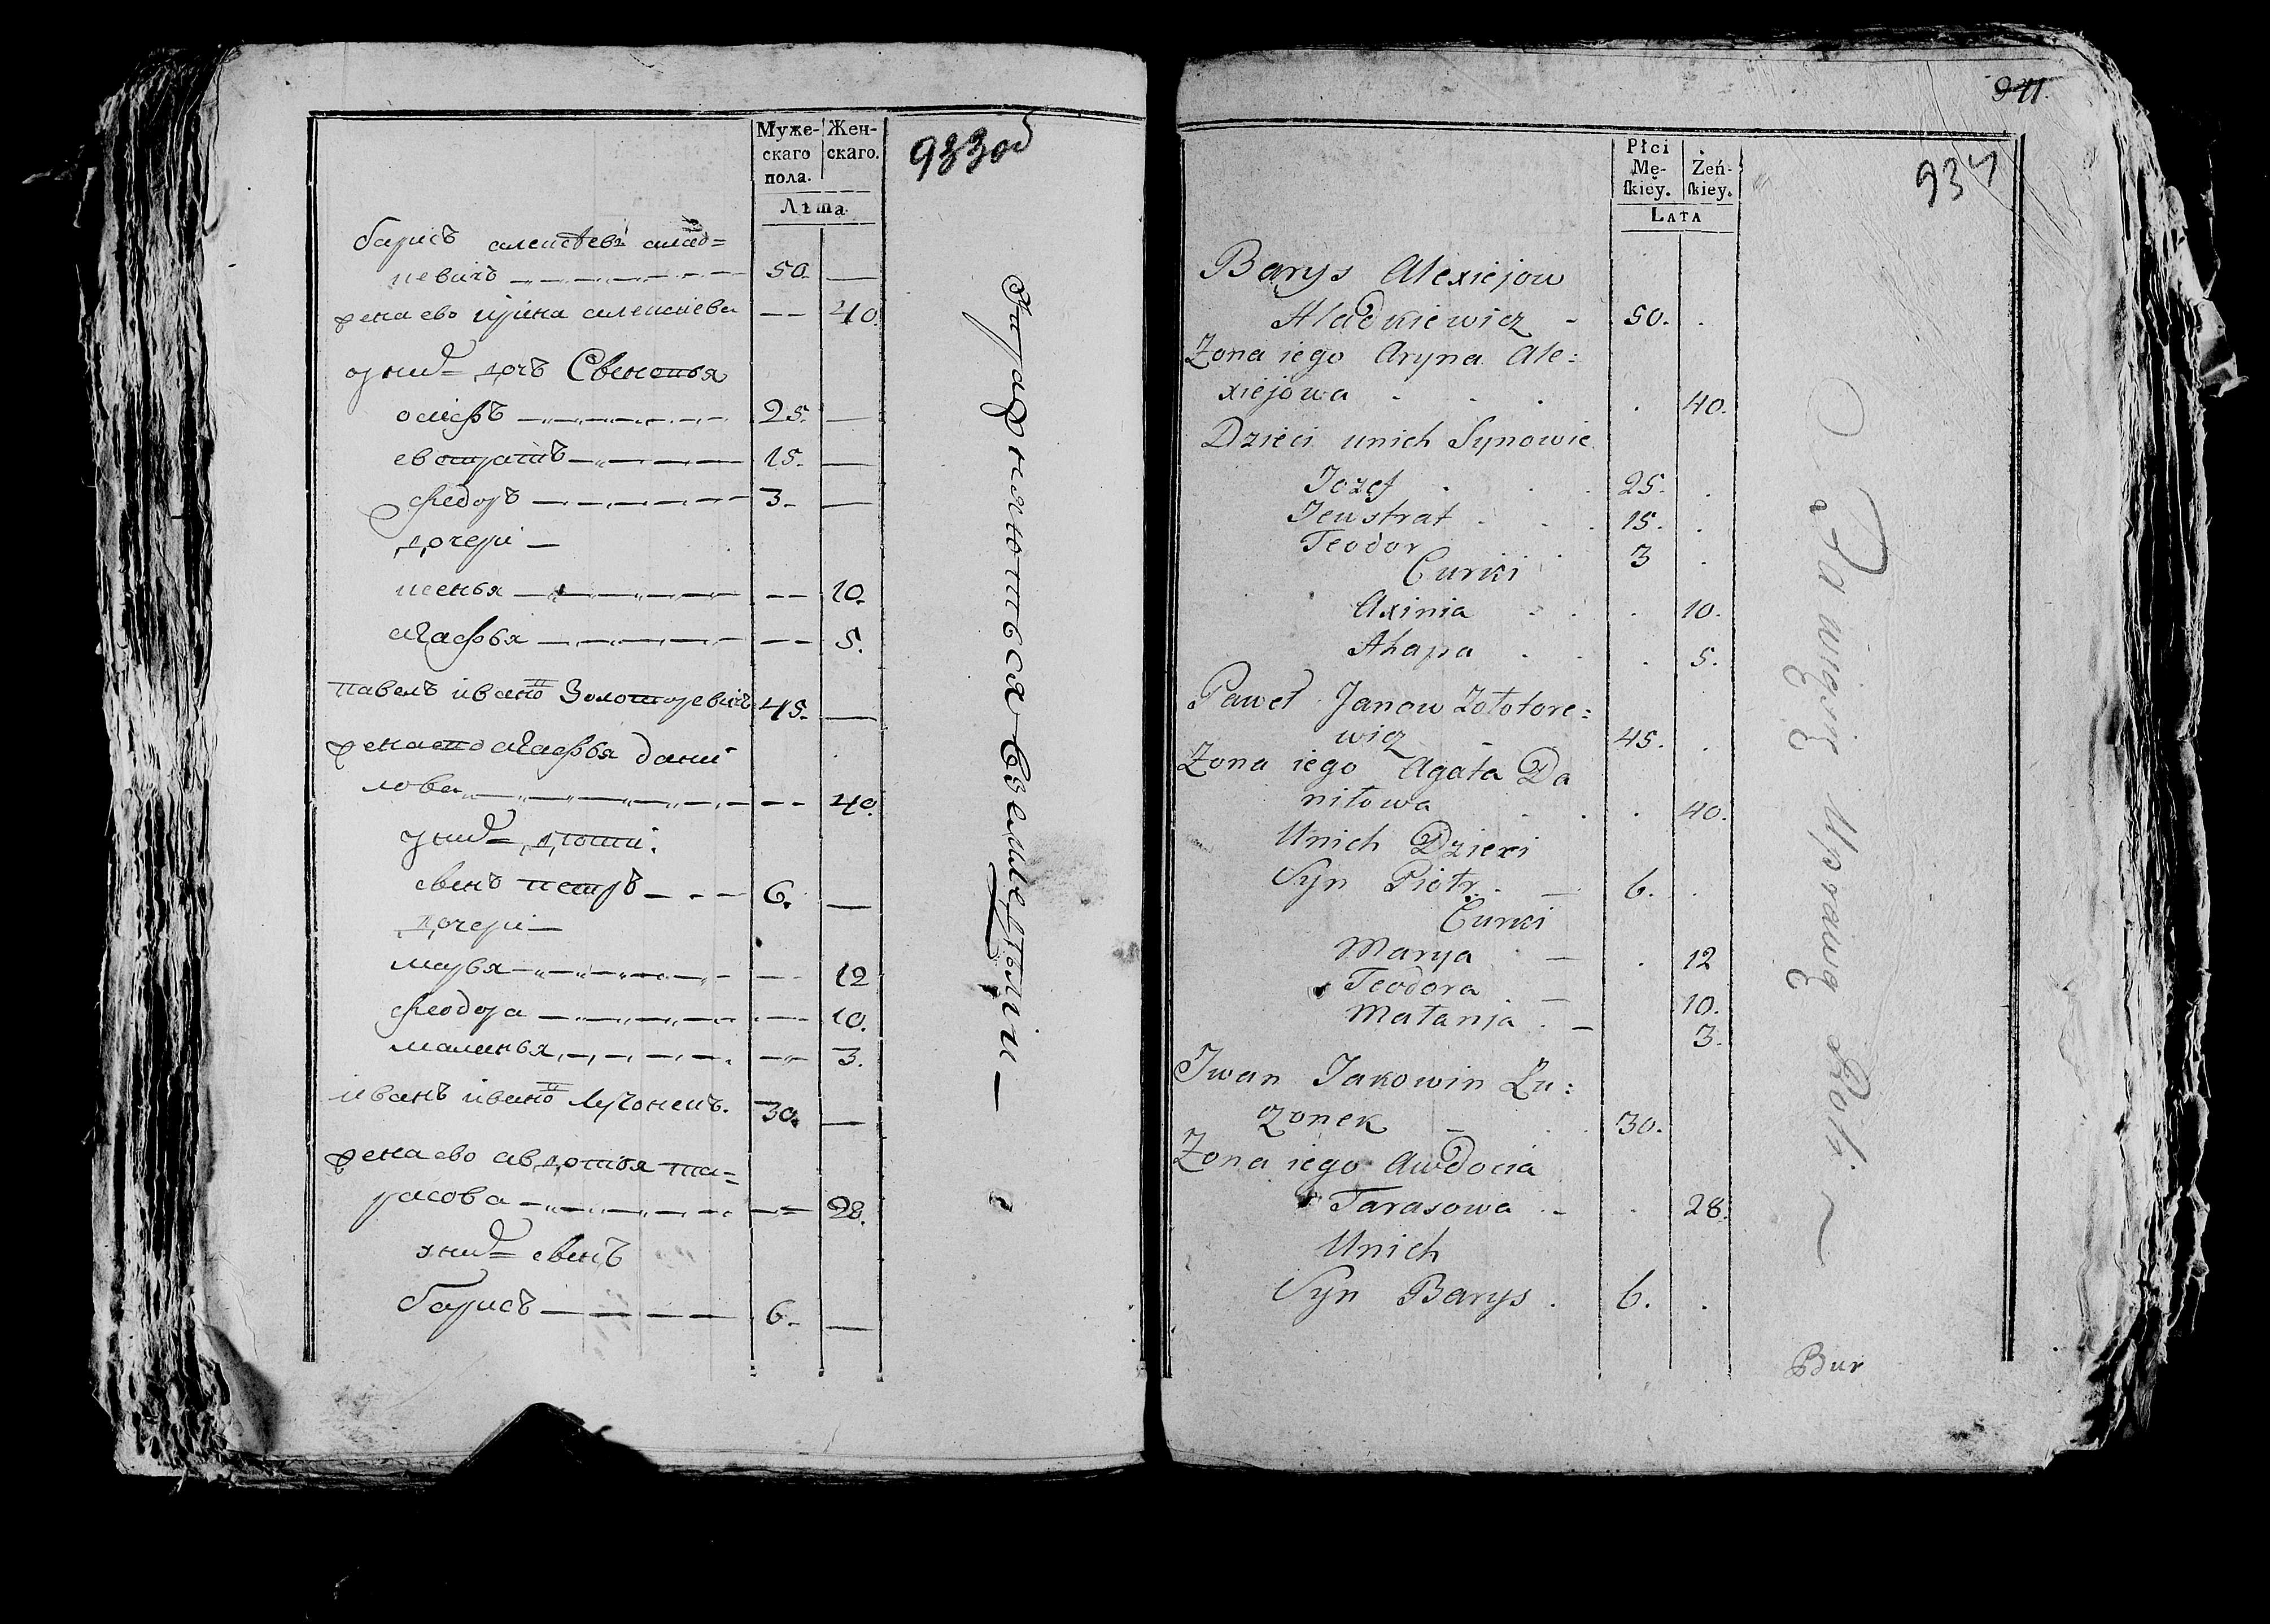 Муже-
скаго
пола.
Жен-
скаго.
Лѣта
933об
борисъ алексѣевъ алад=
кевичъ 50.
жена ево ирина алексиева 40.
у них=
осифъ 25.
евстратъ 15.
федоръ 3.
дочери
ксенья 10.
агафья 5.
павелъ ивано Золоторевичъ 45.
жена ево агафья дани
лова 40.
у них= дѣти:
сынъ петръ 6.
дочери
марья 12
феодора 10.
маланья 3.
иванъ ивано Лучонекъ. 30.
жена ево авдотья та=
расова 28.
у них= сынъ
борисъ 6.
упражняются въ земледѣліи
941.
934
Płci
Mę-
ſkiey.
Żeń-
ſkiey.
LATA
Barys Alexiejow
Aladkiewicz 50.
Zona iego Aryna Ale:
xiejowa 40.
Dzieci unich Synowie
Jozef 25.
Jeustrat 15.
Teodor 3
Curki
Axinia 10.
Ahapa 5.
Paweł Janow Zołotore:
wicz 45.
Zona iego Agata Da
niłowa 40.
Unich Dzieci
Syn Piotr 6.
Curki
Marya 12
Teodora 10.
Małanja 3.
Jwan Jakowin Łu:
czonek 30.
Zona iego Awdocia
Tarasowa 28.
Unich
Syn Barys 6.
Bawią się Uprawą Roli
Bur